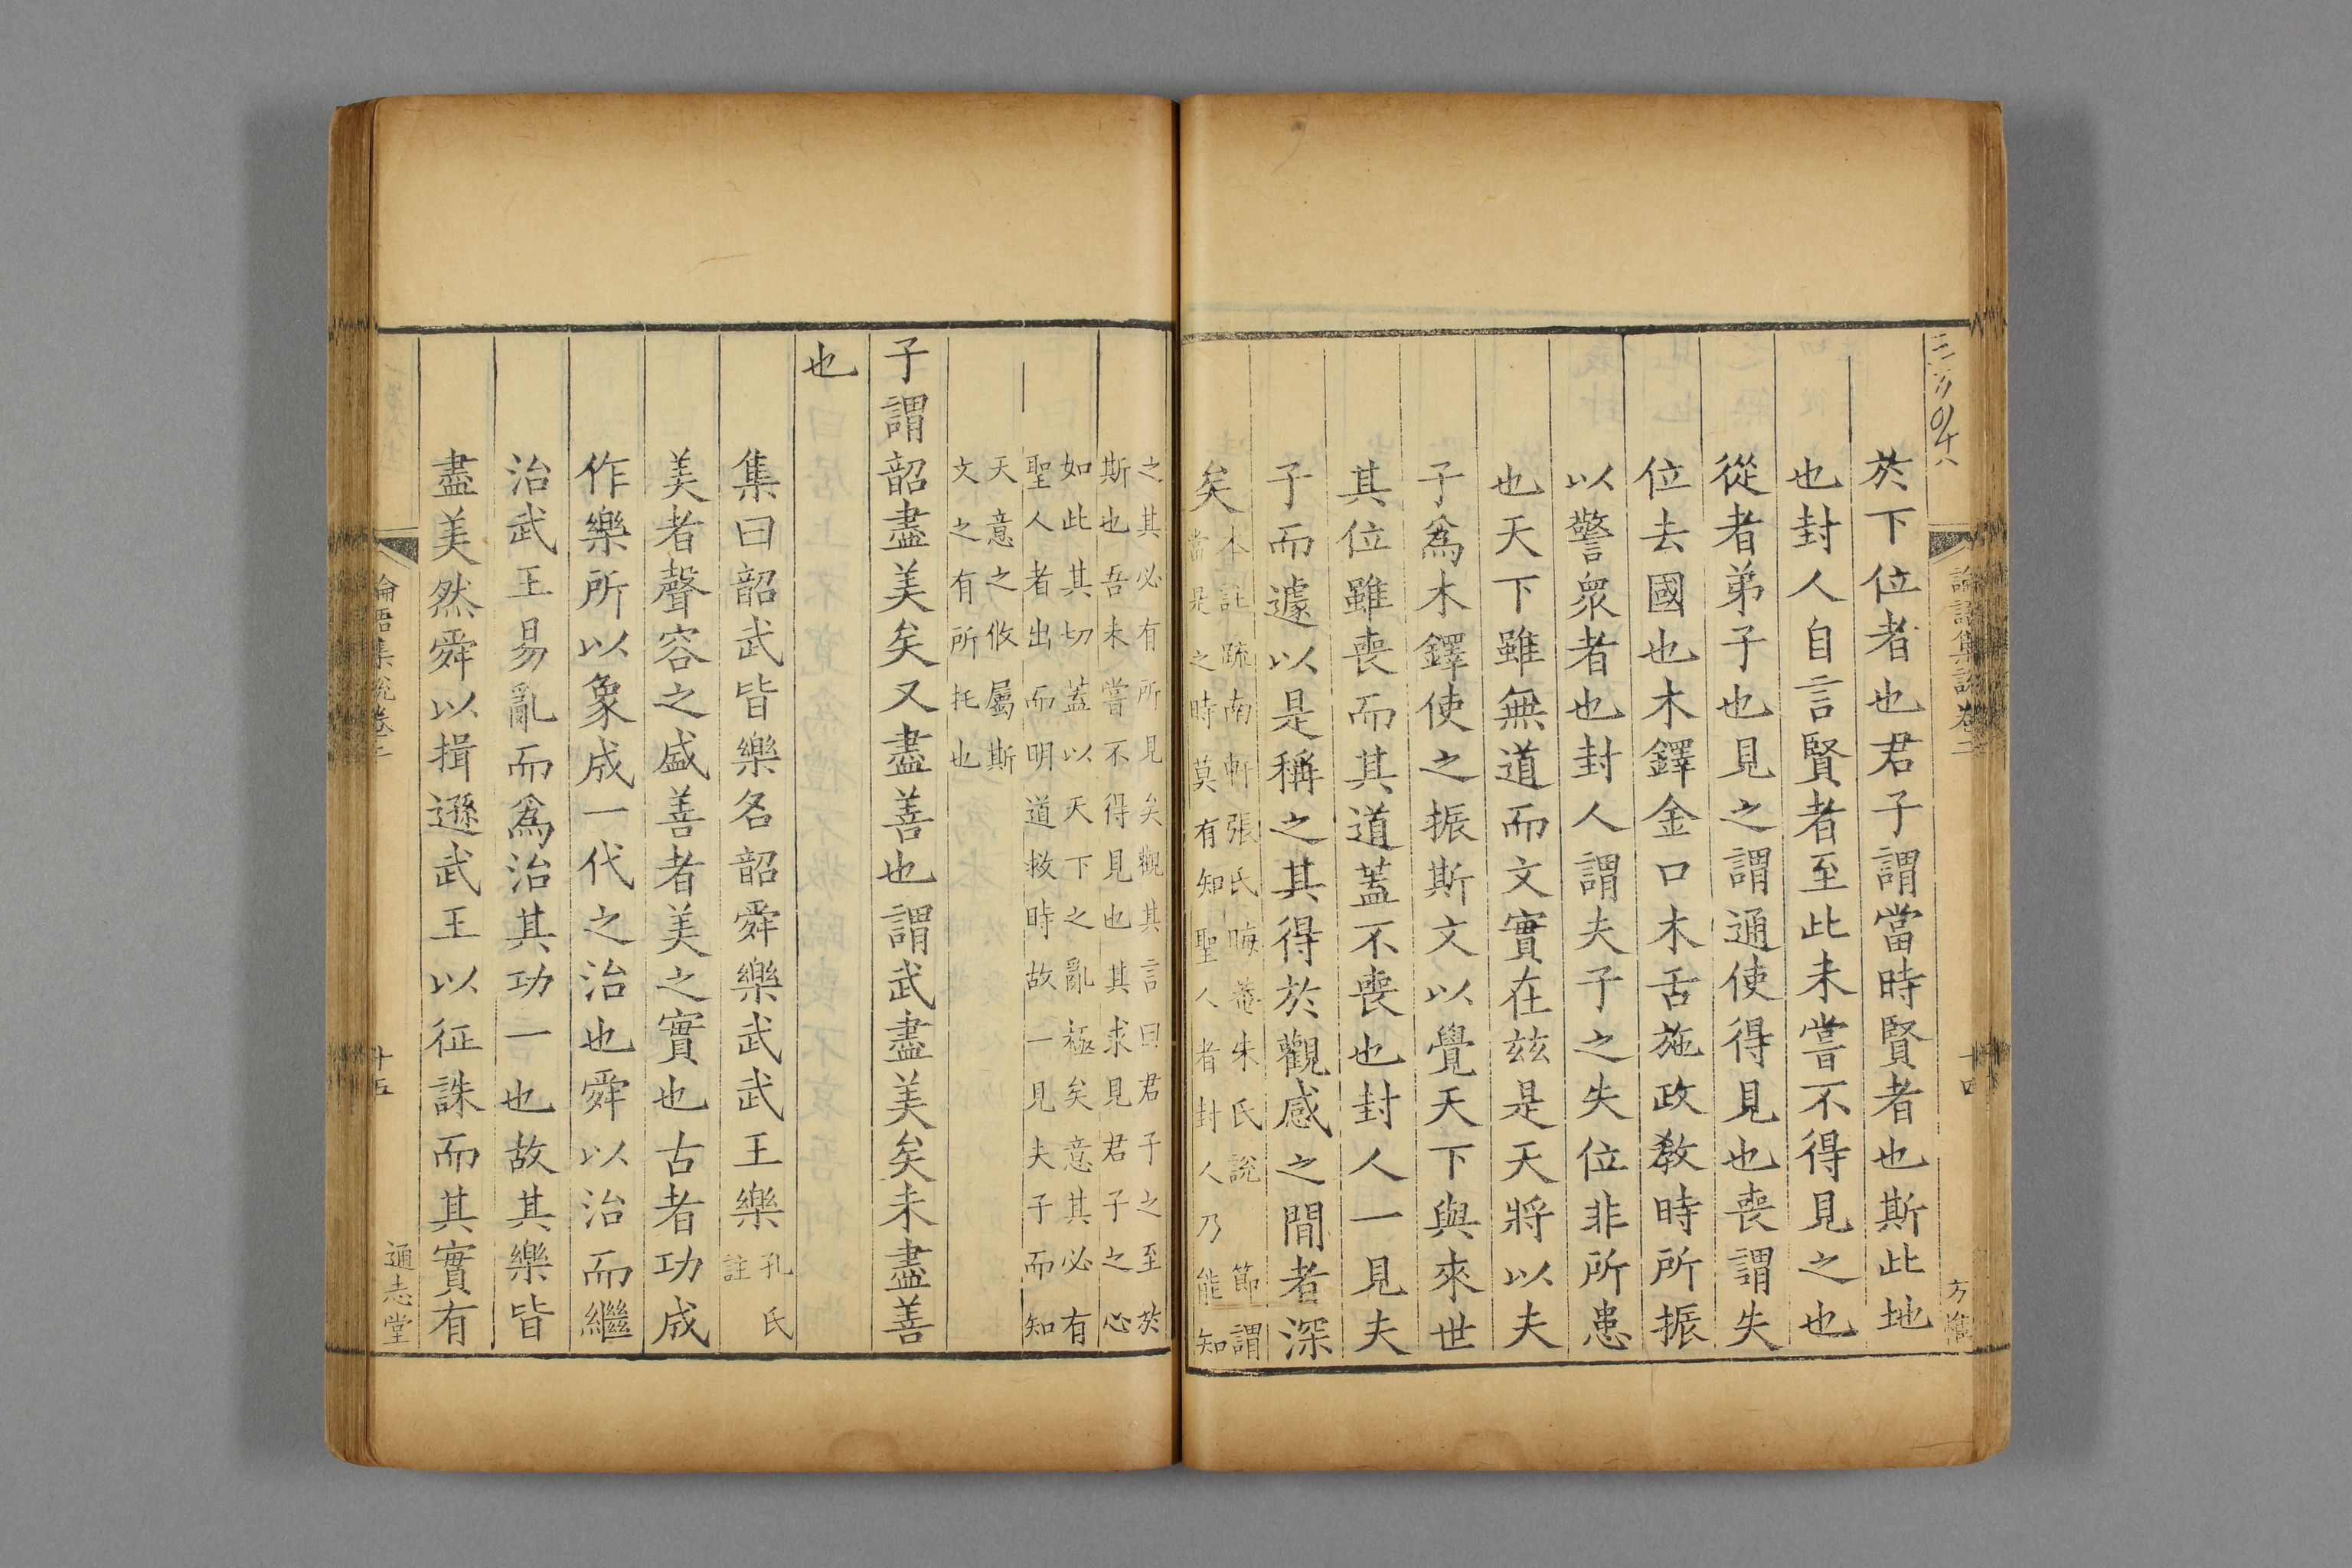 論語集說卷二
十四
於下位者也君子謂當時賢者也斯此地
也封人自言賢者至此未嘗不得見之也
從者弟子也見之謂通使得見也喪謂失
位去國也木鐸金口木舌施政教時所振
以警衆者也封人謂夫子之失位非所患
也天下雖無道而文實在茲是天將以夫
子爲木鐸使之振斯文以覺天下與來世
其位雖喪而其道蓋不喪也封人一見夫
子而遽以是稱之其得於觀感之間者深
矣
本註疏南軒張氏晦菴朱氏說 節謂
當是之時莫有知聖人者封人乃能知
之其必有所見矣觀其言曰君子之至於
斯也吾未嘗不得見也其求見君子之心
如此其切蓋以天下之亂極矣意其必有
聖人者出而明道救時故一見夫子而知
天意之攸屬斯
文之有所托也
子謂韶盡美矣又盡善也謂武盡美矣未盡善
也
集曰韶武皆樂名韶舜樂武武王樂
孔氏
註
美者聲容之盛善者美之實也古者功成
作樂所以象成一代之治也舜以治而繼
治武王易亂而爲治其功一也故其樂皆
盡美然舜以揖遜武王以征誅而其實有
論語集說卷二
十五
通志堂